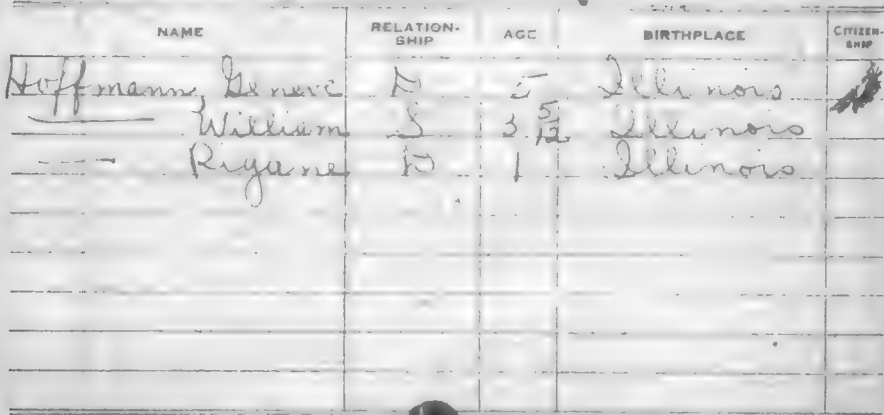 NAME RELATION-SHIP AGE BIRTHPLACE CITIZEN-SHIP
Hoffmann, Geneve D 5 Illinois
William S 3 5/12 Illinois
---- Rigane D 1 Illinois